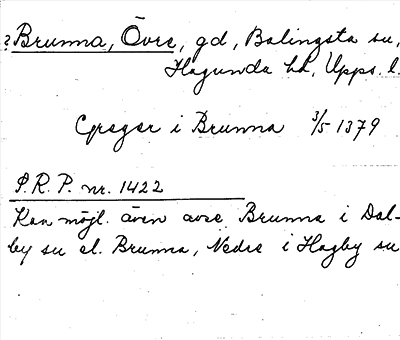 ? Brunna, Övre, gd, Balingsta sn,
Hagunda hd, Upps. l.
Greger i Brunna 3/5 1379
P.R.P. nr. 1422
Kan möjl. även avse Brunna i Dal-
by sn el. Brunna, Nedre i Hagby sn